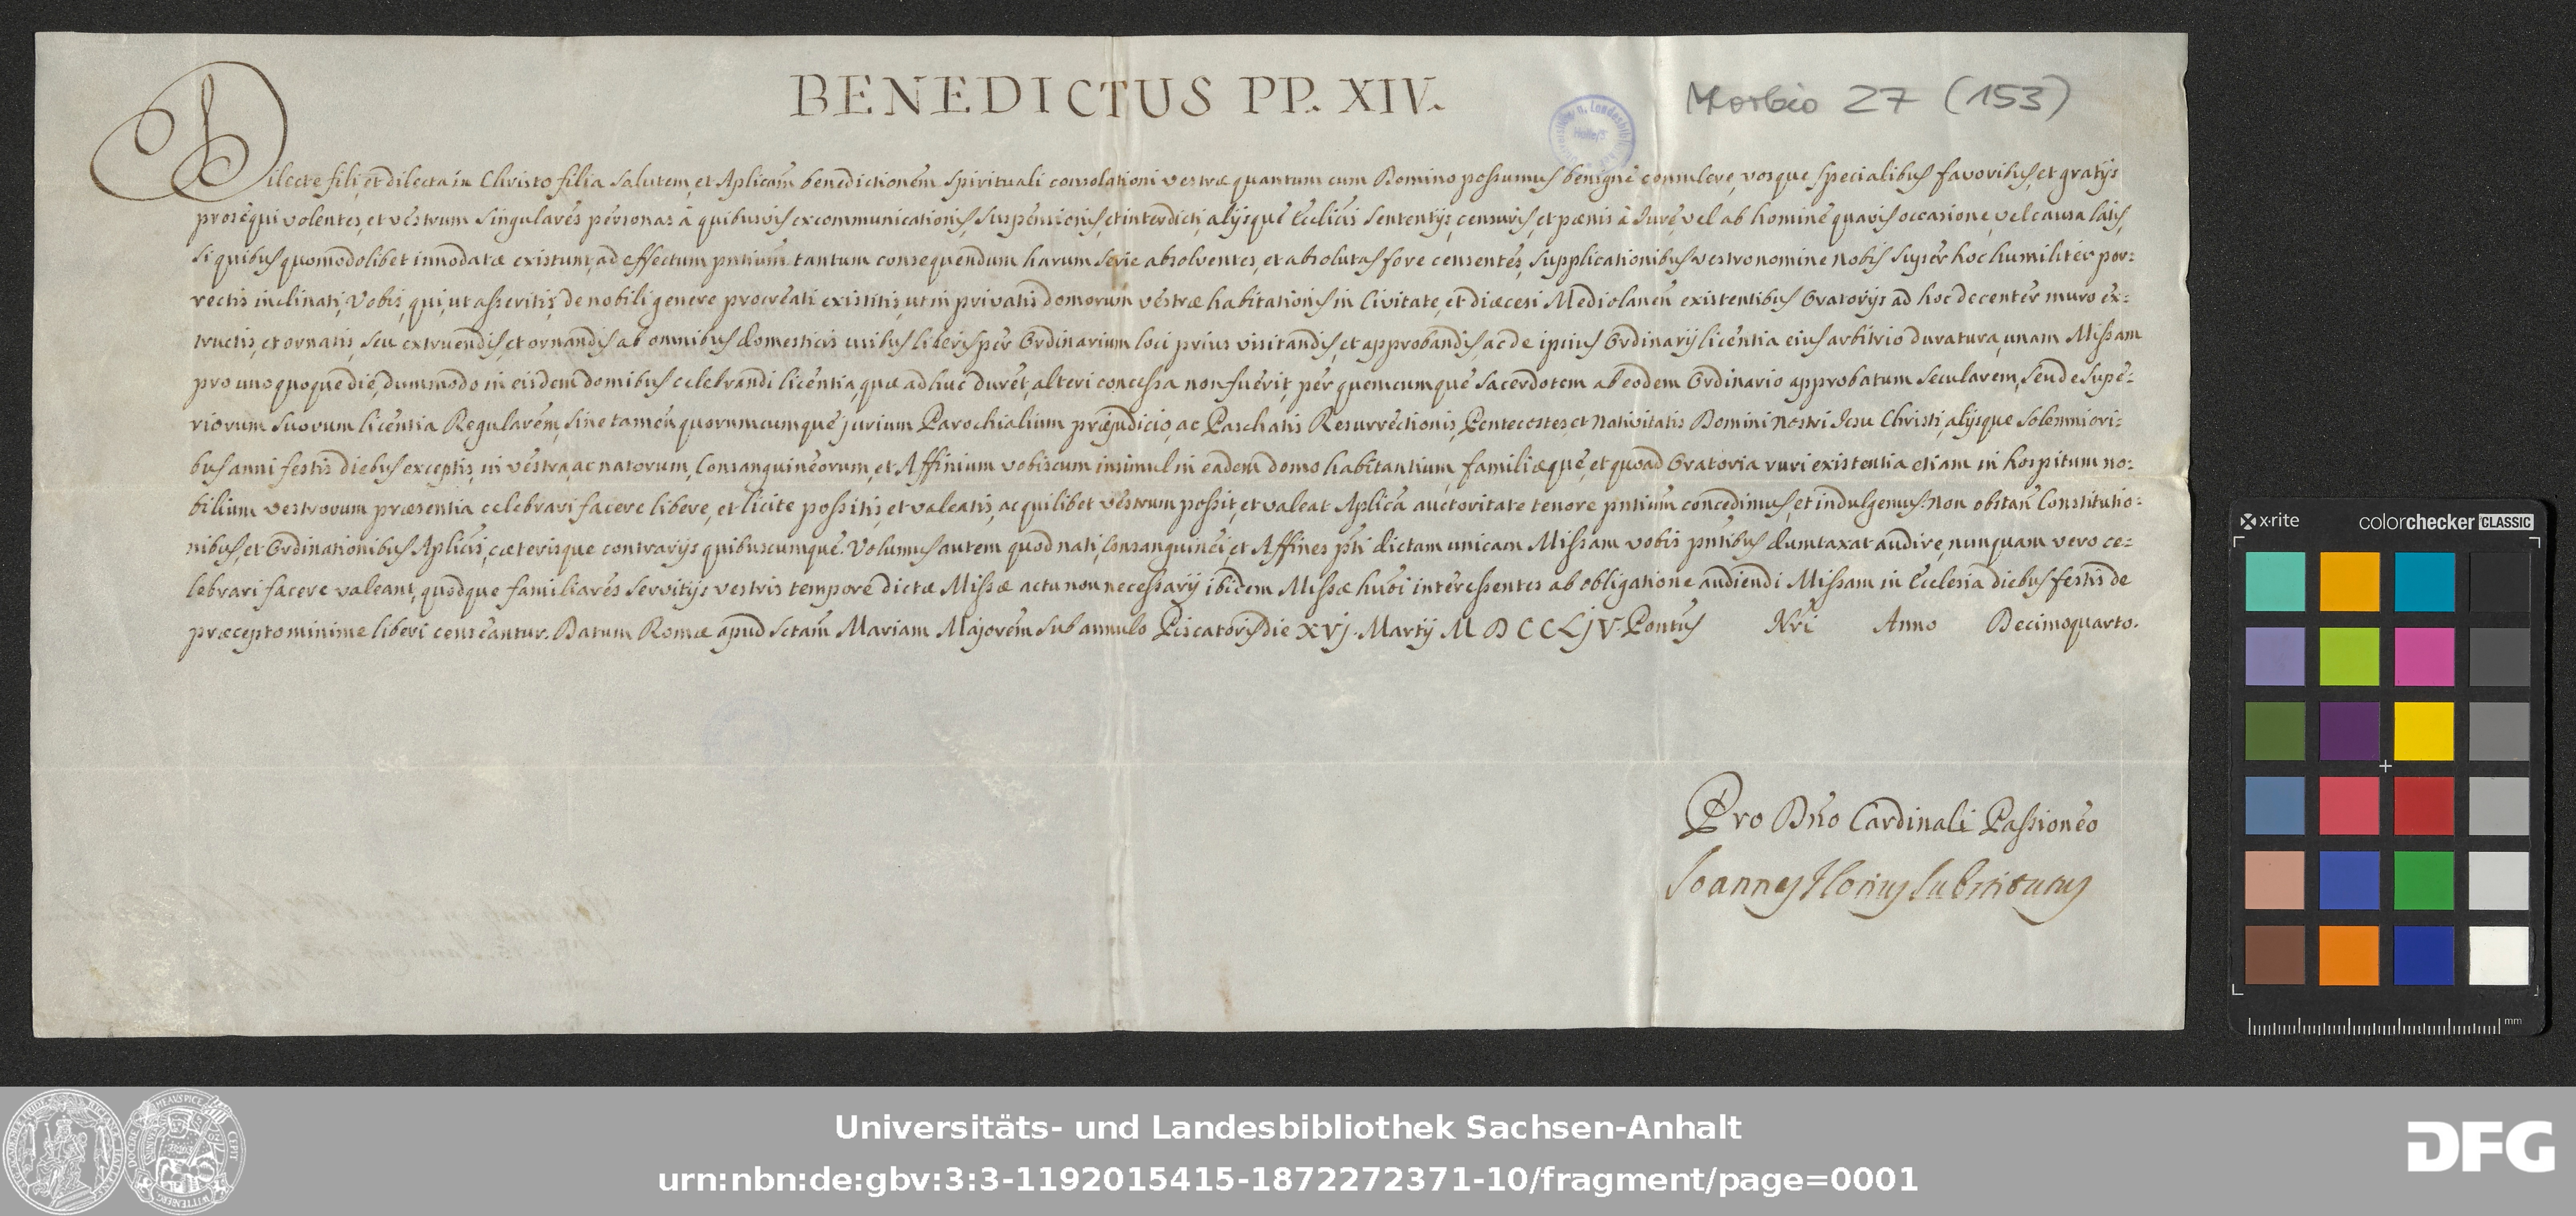 BENEDICTUS PP. XIV.
Morbio 27 (153)
Dilecte fili, et dilecta in Christo filia salutem, et Aplicam benedictionem. Spirituali consolationi vestræ quantum cum Domino possumus benigne consulere, vosque specialibus favoribus, et gratijs
prosequi volentes, et vestrum singulares personas à quibusvis excommunicationis, suspensionis, et interdicti, alijsque Eccliticis sententijs, censuris, et pœnis à Jure, vel ab homine quavis occasione, vel causa latis,
si quibus quomodolibet innodatæ existunt, ad effectum pntium tantum consequendum harum serie absolventes, et absolutas fore censentes, supplicationibus vestro nomine nobis super hoc humiliter por=
rectis inclinati, Vobis, qui, ut asseritis, de nobili genere procreati existitis, ut in privatis domorum vestræ habitationis in Civitate, et diœcesi Mediolanen existentibus Oratorijs ad hoc decenter muro ex=
tructis, et ornatis, seu extruendis, et ornandis ab omnibus domesticis usibus liberis per Ordinarium loci prius visitandis, et approbandis, ac de ipsius Ordinarij licentia eius arbitrio duratura, unam Missam
pro unoquoque die, dummodo in eisdem domibus celebrandi licentia, quæ adhuc duret, alteri concessa non fuerit, per quemcumque sacerdotem ab eodem Ordinario approbatum secularem, seu de supe=
riorum suorum licentia Regularem, sine tamen quorumcumque jurium Parochialium præjudicio, ac Paschatis Resurrectionis, Pentecostes, et Nativitatis Domini Nostri Jesu Christi, alijsque solemniori=
bus anni festis diebus exceptis, in vestra, ac natorum, Consanguineorum, et Affinium vobiscum insimul in eadem domo habitantium, familiæque, et quoad Oratoria ruri existentia etiam in hospitum no=
bilium vestrorum præsentia celebrari facere libere, et licite possitis, et valeatis, ac quilibet vestrum possit, et valeat Aplica auctoritate tenore pntium concedimus, et indulgemus. Non obstan Constitutio=
nibus, et Ordinationibus Aplicis, cæterisque contrarijs quibuscumque. Volumus autem quod nati, Consanguinei, et Affines pti dictam unicam Missam vobis pntibus dumtaxat audire, nunquam vero ce=
lebrari facere valeant, quodque familiares servitijs vestris tempore dictæ Missæ actu non necessarij ibidem Missæ hmoi interessentes ab obligatione audiendi Missam in Ecclesia diebus festis de
præcepto minime liberi censeantur. Datum Romæ apud Sctam Mariam Majorem sub annulo Piscatoris die XVj. Martij MDCCLjV. Pontus Nri Anno Decimoquarto.
Pro Dno Cardinali Passioneo
Joannes Florius Substitutus
x-rite
colorchecker CLASSIC
mm
Universitäts- und Landesbibliothek Sachsen-Anhalt
urn:nbn:de:gbv:3:3-1192015415-1872272371-10/fragment/page=0001
DFG